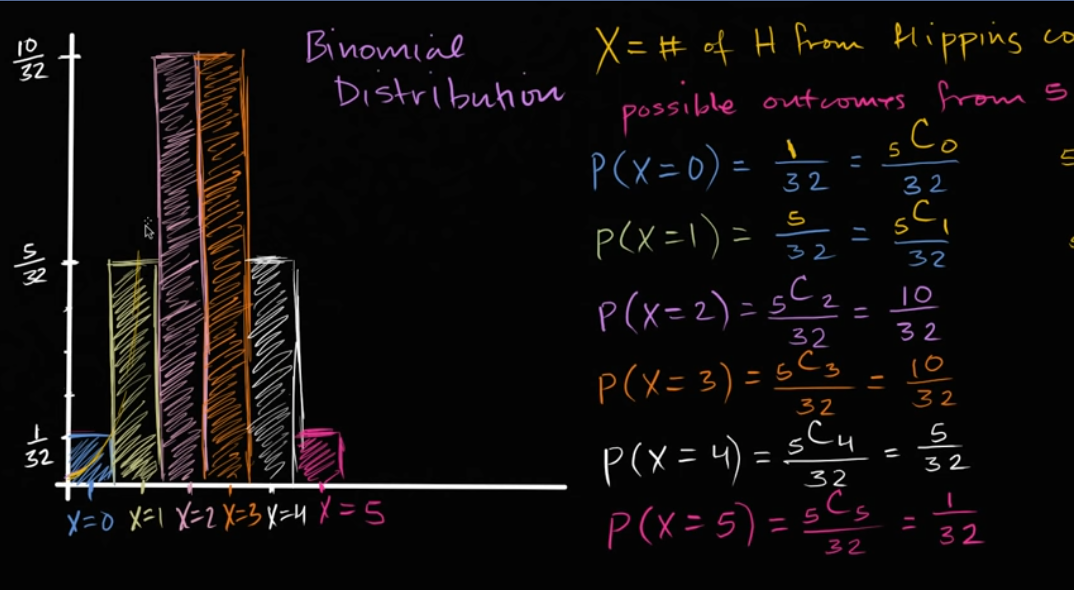 Binomial
Distribution
10/32
5/32
1/32
X=0 X=1 X=2 X=3 X=4 X=5
X = # of H from flipping co
possible outcomes from 5
P(X=0) = 1/32 = ₅C₀/32
P(X=1) = 5/32 = ₅C₁/32
P(X=2) = ₅C₂/32 = 10/32
P(X=3) = ₅C₃/32 = 10/32
P(X=4) = ₅C₄/32 = 5/32
P(X=5) = ₅C₅/32 = 1/32